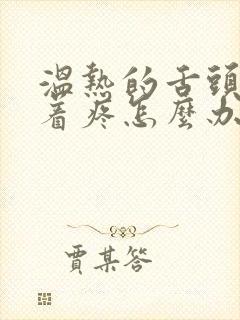 溫熱的舌頭
着疼怎麼办
賈某答